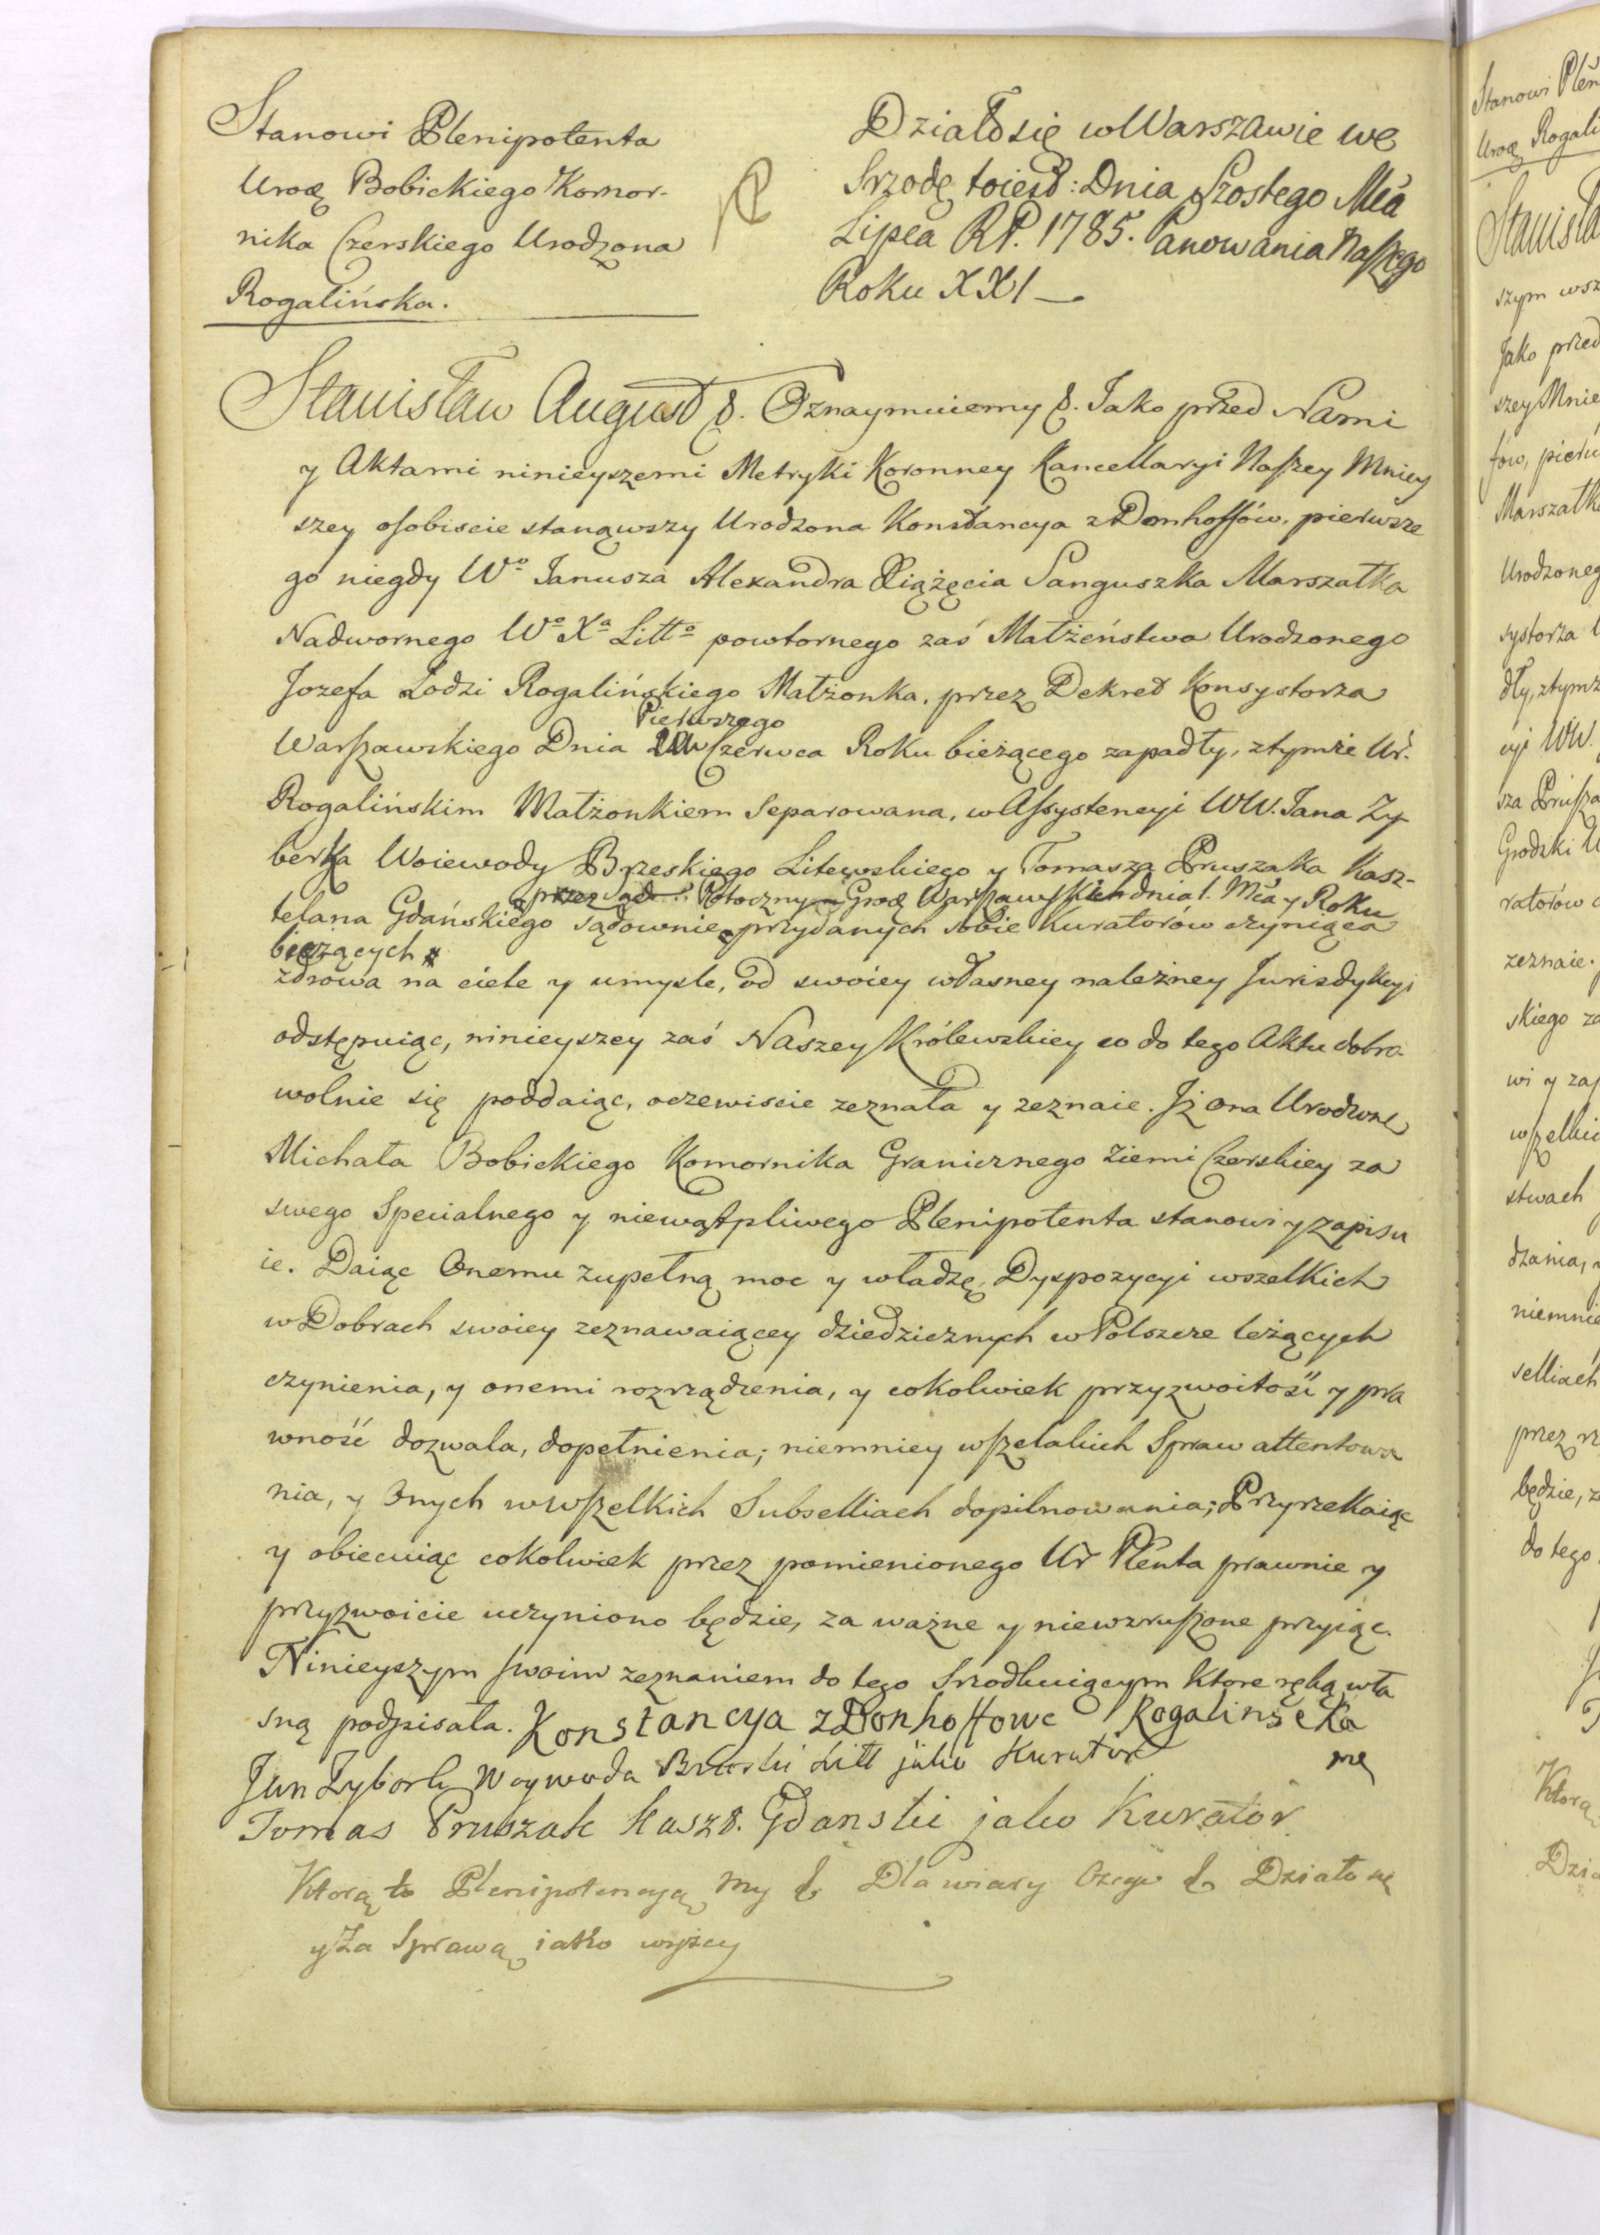 Stanowi Plenipotenta
Urod Bobickiego Komor-
nika Czerskiego Urodzona
Rogalińska.
Działo się w Warszawie we
Srzodę toiest: Dnia Szostego Mca
Lipca RP. 1785. Panowania Naszego
Roku XXI
Stanisław August &. Oznaymuiemy &. Jako przed Nami
y Aktami ninieyszemi Metryki Koronney Kancellaryi Naszey Mniey
szey osobiscie stanąwszy Urodzona Konstancya z Donhoffów, pierwsze
go niegdy Wo Janusza Alexandra Xiążęcia Sanguszka Marszałka
Nadwornego Wo Xa Litto powtornego zaś Małżeństwa Urodzonego
Jozefa Łodzi Rogalińskiego Małżonka, przez Dekret Konsystorza
Pierwszego
Warszawskiego Dnia Czerwca Roku bieżącego zapadły, ztymże Ur.
Rogalińskim Małżonkiem Separowana, w Assystencyi WW. Jana Zy
berka Woiewody Brzeskiego Litewskiego y Tomasza Pruszaka Kasz-
przez Sąd Potoczny Grod Warszawski dnia 1. Mca y Roku
telana Gdańskiego sądownie przydanych sobie Kuratorów czyniąca
bieżących
zdrowa na ciele y umysle, od swoiey własney należney Jurisdykcyi
odstępuiąc, ninieyszey zaś Naszey Królewskiey co do tego Aktu dobro-
wolnie się poddaiąc, oczewiscie zeznała y zeznaie. Jż ona Urodzone
Michała Bobickiego Komornika Granicznego Ziemi Czerskiey za
swego Specialnego y niewątpliwego Plenipotenta stanowi y zapisu
ie. Daiąc Onemu zupełną moc y władzę, Dyspozycyi wszelkich
w Dobrach swoiey zeznawaiącey dziedzicznych w Polszcze leżących
czynienia, y onemi rozrządzenia, y cokolwiek przyzwoitość y pra
wność dozwala, dopełnienia; niemniey wszelakich Spraw attentowa
nia, y Onych w wszelkich Subselliach dopilnowania; Przyrzekaiąc
y obiecuiąc cokolwiek przez pomienionego Ur Plenta prawnie y
przyzwoicie uczyniono będzie, za ważne y niewzruszone przyiąc.
Ninieyszym swoim zeznaniem do tego Srzodkuiącym ktore ręką wła
sną podpisała. Konstancya z Donhoffowc Rogalinscka
mę
Jan Zyberk Woywoda Brzeski Litt jako Kurator
Tomas Pruszak Kasz&. Gdanski jako Kurator
Ktorą to Plenipotencyą My & Dla wiary Czego & Działo się
y Za Sprawą iako wyżey